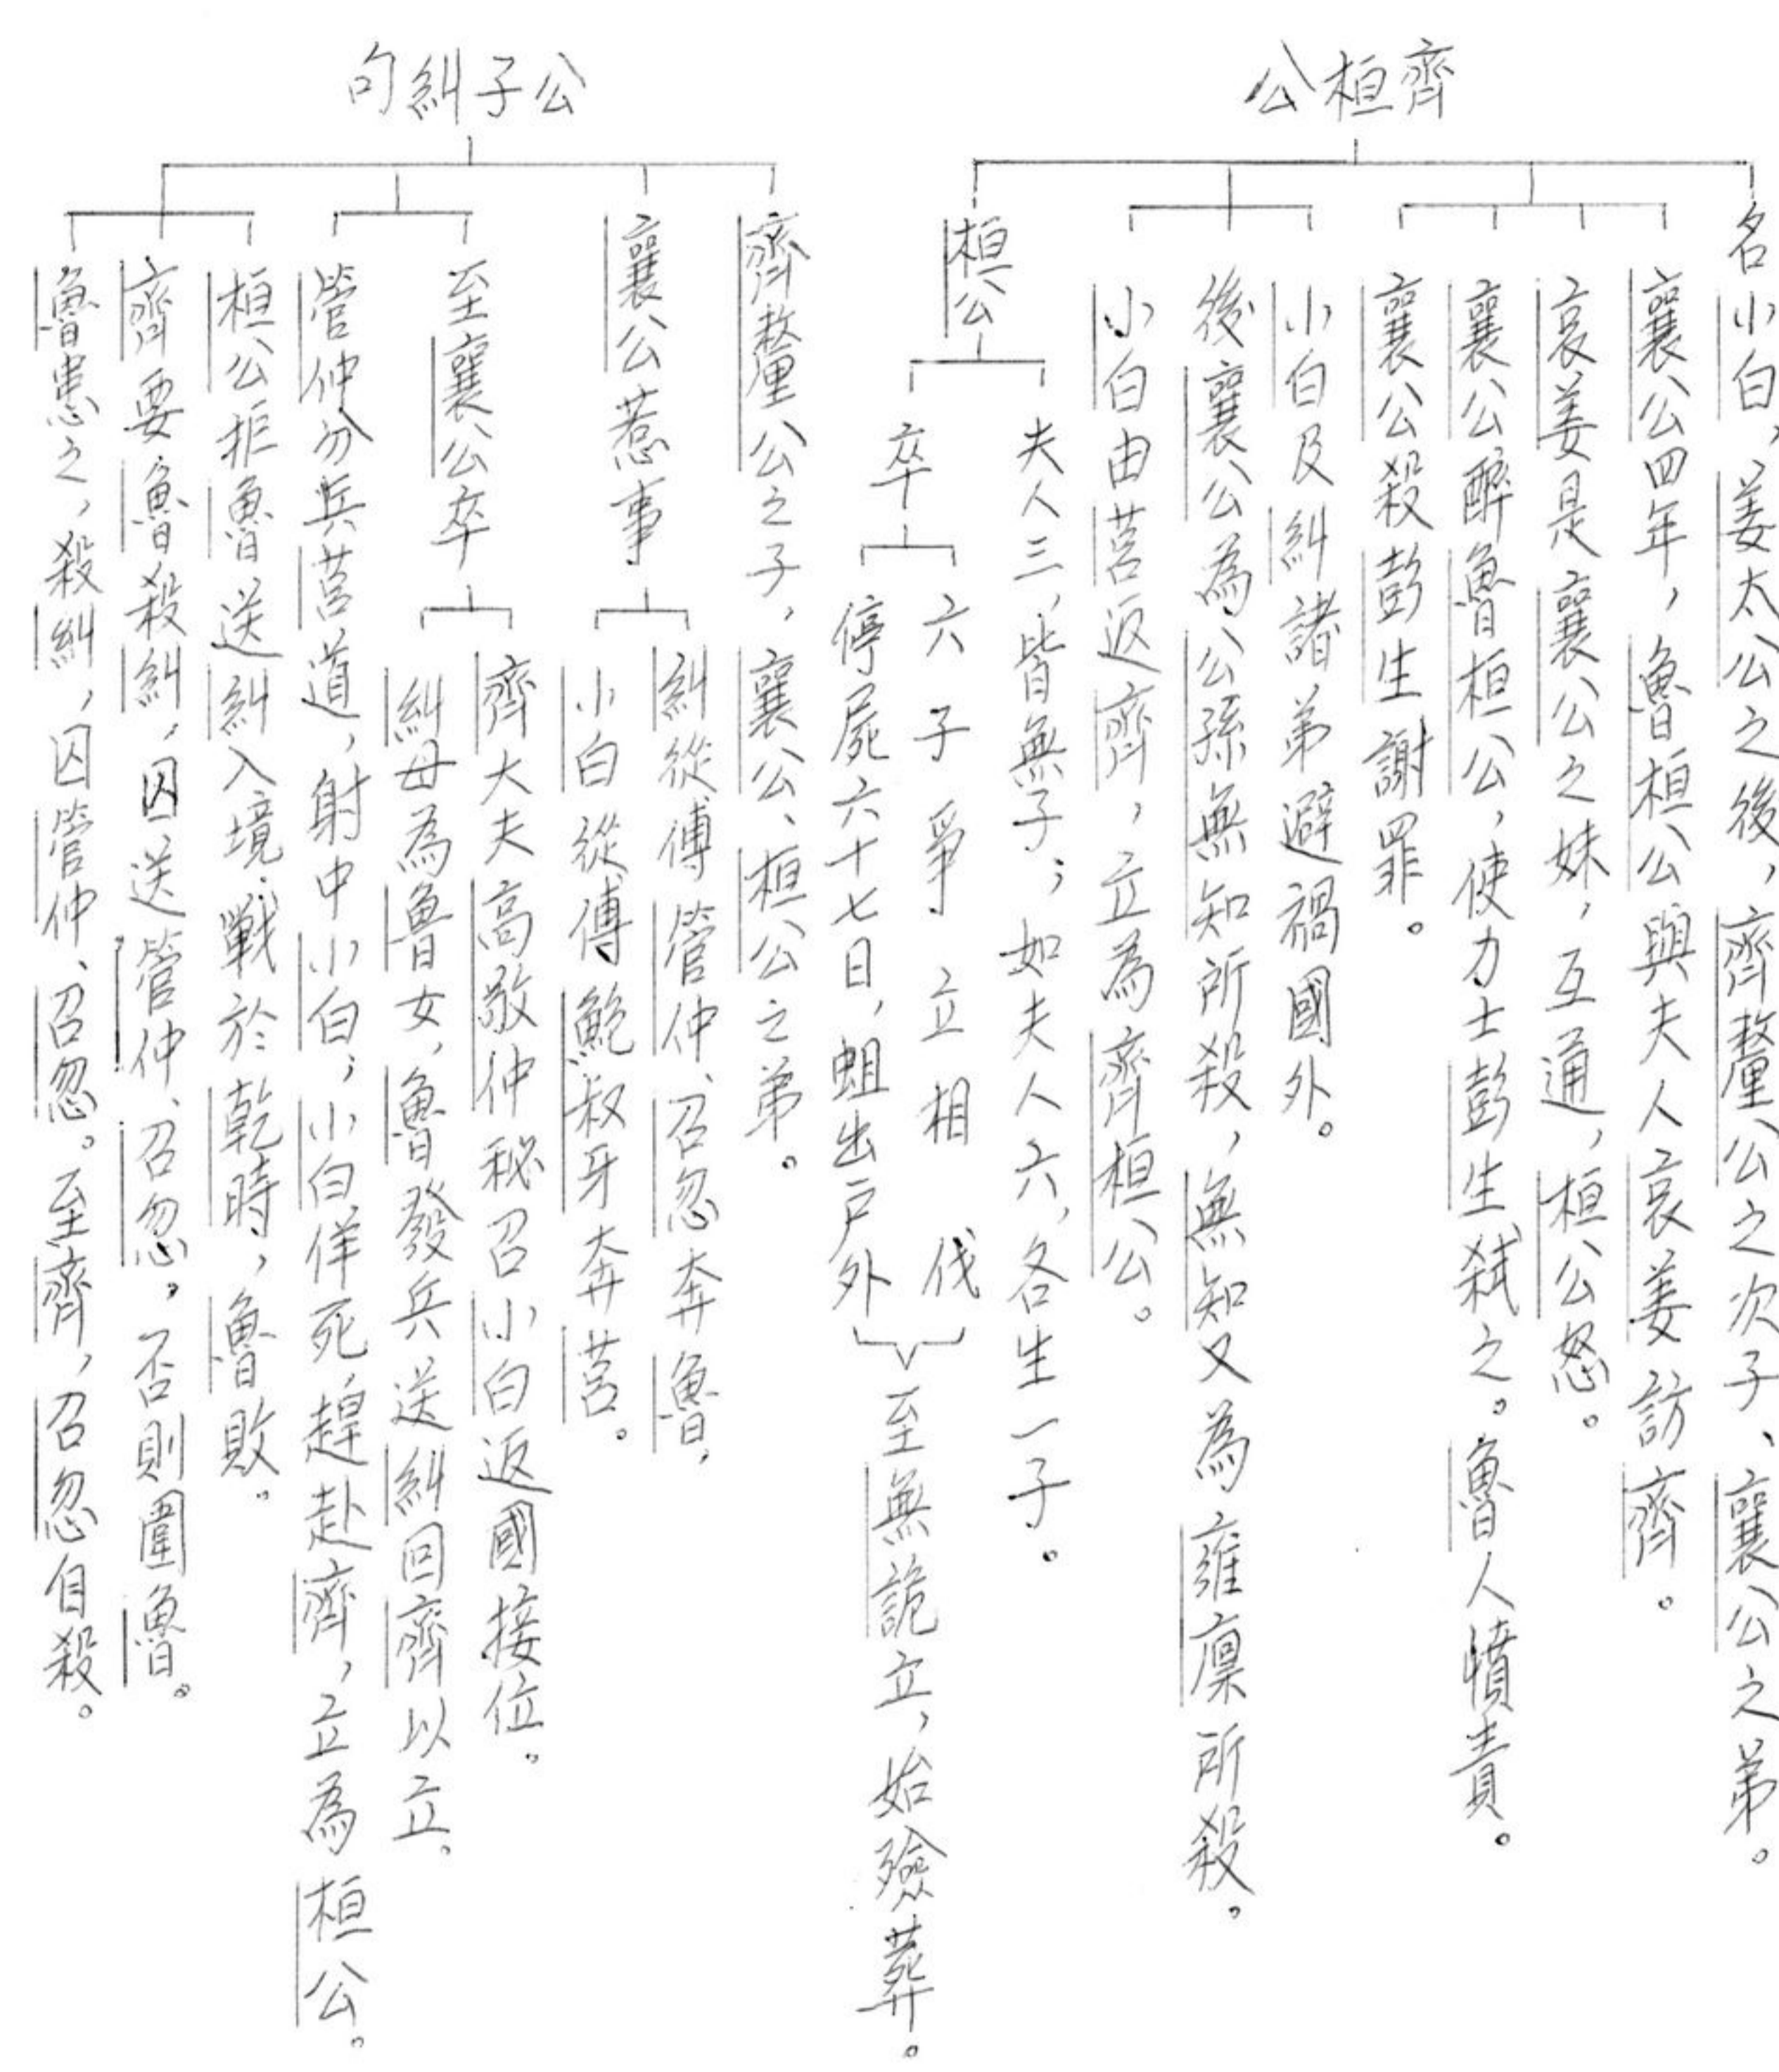 齊桓公
名小白，姜太公之後，齊釐公之次子、襄公之弟。
襄公四年，魯桓公與夫人哀姜訪齊。
哀姜是襄公之妹，互通，桓公怒。
襄公醉魯桓公，使力士彭生弒之。魯人憤責。
襄公殺彭生謝罪。
小白及糾諸弟避禍國外。
後襄公為公孫無知所殺，無知又為雍廩所殺。
小白由莒返齊，立為齊桓公。
桓公
夫人三，皆無子；如夫人六，各生一子。
卒
六子爭立相伐
停屍六十七日，蛆出戶外
至無詭立，始殮葬。
公子糾句
齊釐公之子，襄公、桓公之弟。
襄公惹事
糾從傅管仲、召忽奔魯，
小白從傅鮑叔牙奔莒。
至襄公卒
齊大夫高敬仲秘召小白返國接位。
糾母為魯女，魯發兵送糾回齊以立。
管仲分兵莒道，射中小白；小白佯死，趕赴齊，立為桓公。
桓公拒魯送糾入境，戰於乾時，魯敗。
齊要魯殺糾，囚送管仲、召忽。否則圍魯。
魯患之，殺糾，囚管仲、召忽。至齊，召忽自殺。